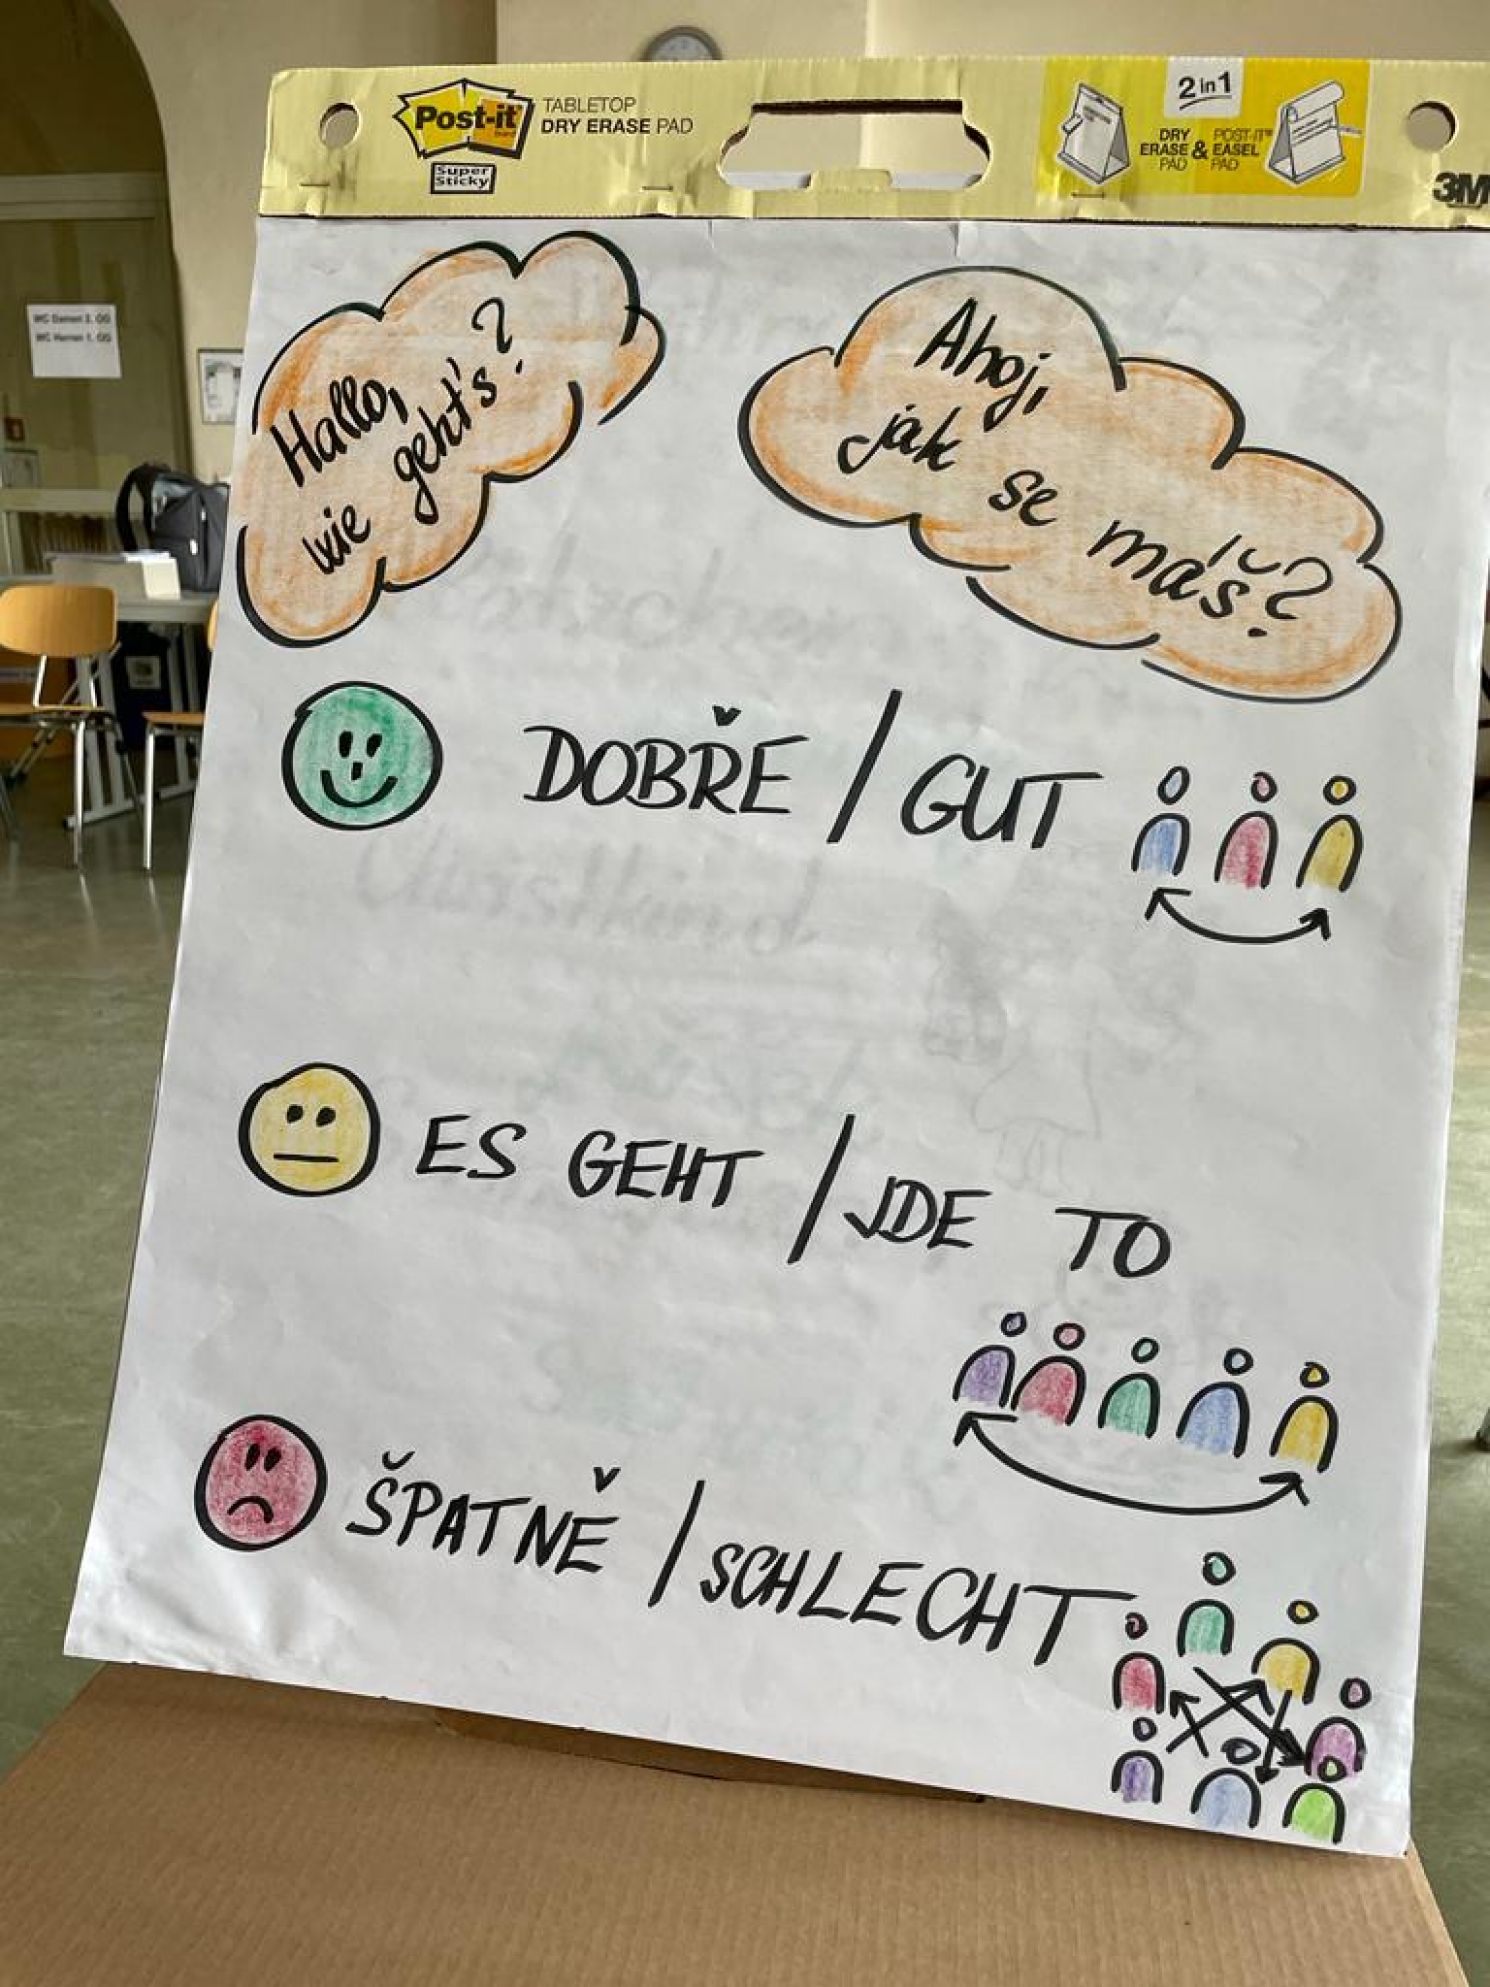 Post-it
Super
Sticky
TABLETOP
DRY ERASE PAD
2 in 1
DRY
ERASE
PAD
&
POST-IT™
EASEL
PAD
3M
WC Damen 2. OG
WC Herren 1. OG
Hallo,
wie geht's?
Ahoj,
jak se máš?
DOBŘE / GUT
ES GEHT / JDE TO
ŠPATNĚ / SCHLECHT